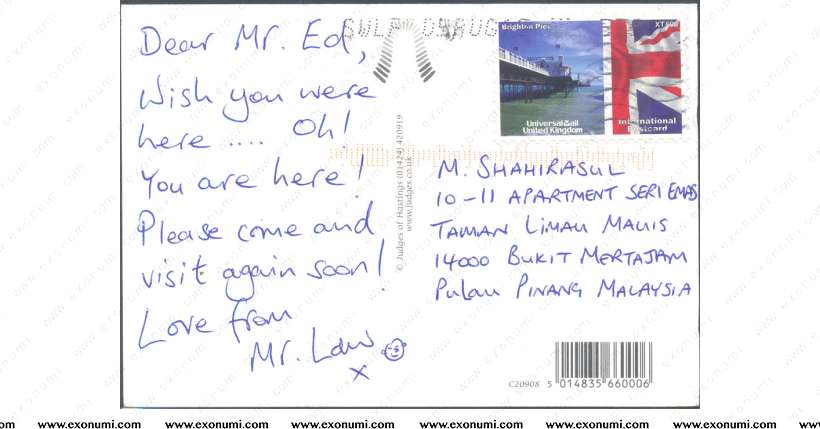 Dear Mr. Ed,
Wish you were
here .... Oh!
You are here!
Please come and
visit again soon!
Love from
Mr. Law
x
© Judges of Hastings (01424) 420919
www.judges.co.uk
Brighton Pier
Universal Mail
United Kingdom
International
Postcard
M. SHAHIRASUL
10-11 APARTMENT SERI EMAS
TAMAN LIMAU MANIS
14000 BUKIT MERTAJAM
PULAU PINANG MALAYSIA
C20908
5 014835 660006
www.exonumi.com www.exonumi.com www.exonumi.com www.exonumi.com www.exonumi.com www.exonumi.com